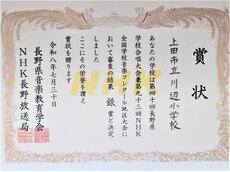 賞状
上田市立川辺小学校
あなたの学校は第四十回長野県
学校合唱大会兼第九十三回NHK
全国学校音楽コンクール地区大会に
おいて審査の結果 銀賞と決定
しました
ここにその栄誉を讃え
賞状を贈ります
令和八年七月三十日
長野県音楽教育学会
NHK長野放送局